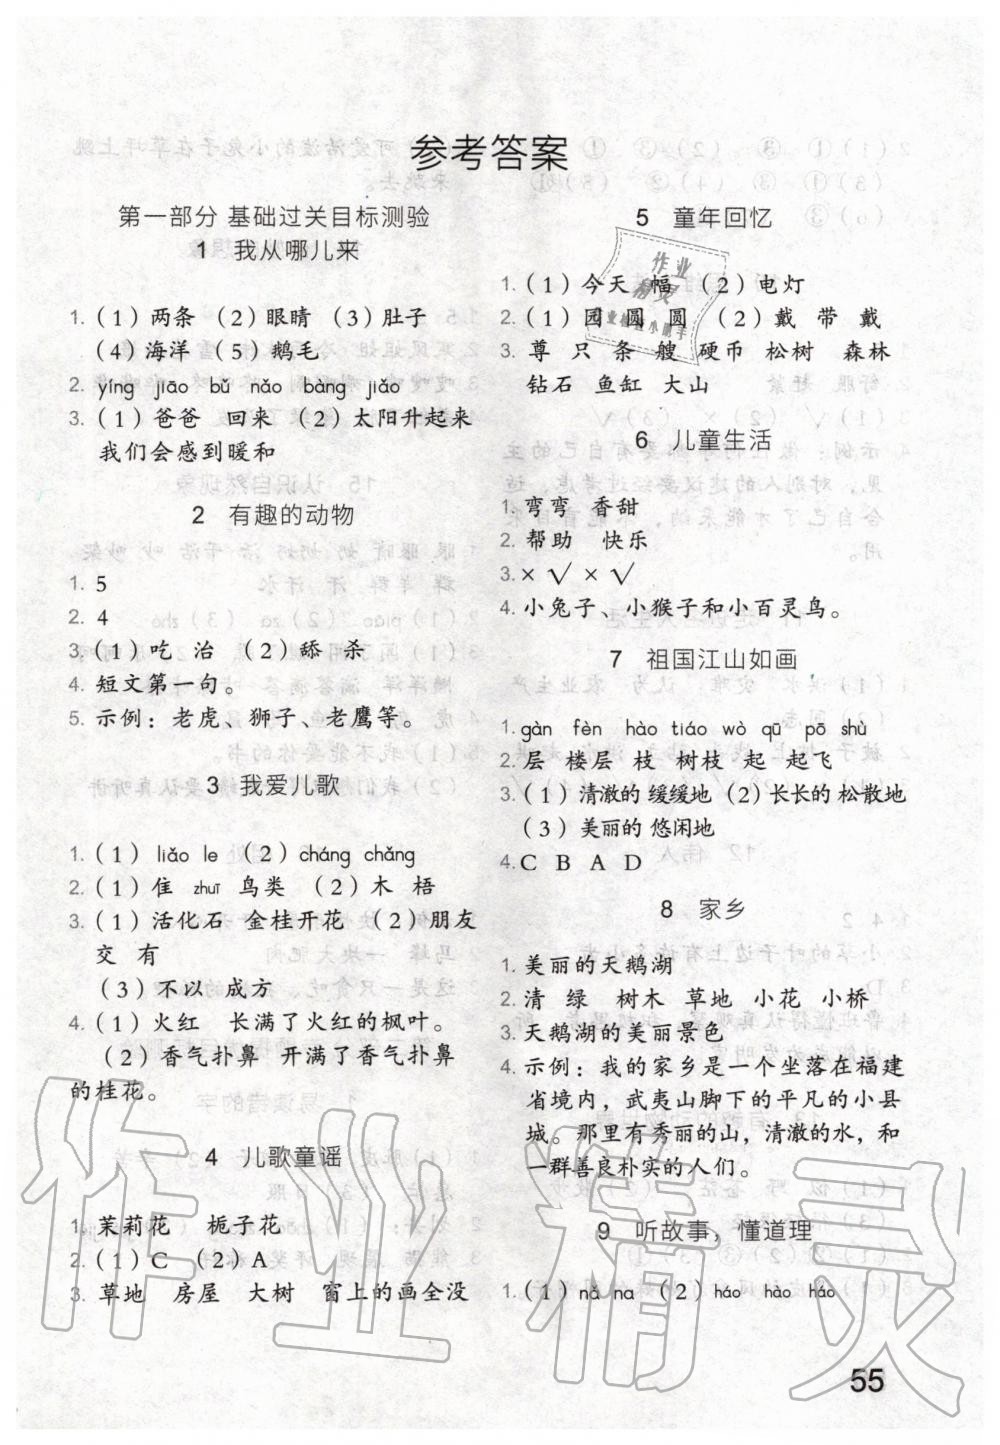 参考答案
第一部分 基础过关目标测验
1 我从哪儿来
1.(1)两条 (2)眼睛 (3)肚子
(4)海洋 (5)鹅毛
2. yíng jiāo bǔ nǎo bàng jiāo
3.(1)爸爸 回来 (2)太阳升起来
我们会感到暖和
2 有趣的动物
1. 5
2. 4
3.(1)吃 治 (2)舔 杀
4. 短文第一句。
5. 示例：老虎、狮子、老鹰等。
3 我爱儿歌
1.(1)liǎo le (2)cháng chǎng
2.(1)隹 zhuī 鸟类 (2)木 梧
3.(1)活化石 金桂开花 (2)朋友
交 有
(3)不以 成方
4.(1)火红 长满了火红的枫叶。
(2)香气扑鼻 开满了香气扑鼻
的桂花。
4 儿歌童谣
1. 茉莉花 栀子花
2.(1)C (2)A
3. 草地 房屋 大树 窗上的画全没
5 童年回忆
1.(1)今天 幅 (2)电灯
2.(1)园 圆 圆 (2)戴 带 戴
3. 尊 只 条 艘 硬币 松树 森林
钻石 鱼缸 大山
6 儿童生活
1. 弯弯 香甜
2. 帮助 快乐
3. × √ × √
4. 小兔子、小猴子和小百灵鸟。
7 祖国江山如画
1. gàn fèn hào tiáo wò qū pō shù
2. 层 楼层 枝 树枝 起 起飞
3.(1)清澈的 缓缓地 (2)长长的 松散地
(3)美丽的 悠闲地
4. C B A D
8 家乡
1. 美丽的天鹅湖
2. 清 绿 树木 草地 小花 小桥
3. 天鹅湖的美丽景色
4. 示例：我的家乡是一个坐落在福建
省境内，武夷山脚下的平凡的小县
城。那里有秀丽的山，清澈的水，和
一群善良朴实的人们。
9 听故事，懂道理
1.(1)nǎ na (2)háo hào háo
55
作业精灵